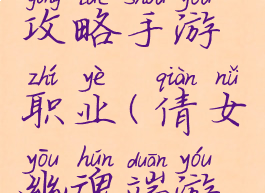 gōng lüè shǒu yóu
攻略手游
zhí yè qiàn nǚ
职业(倩女
yōu hún duān yóu
幽魂端游